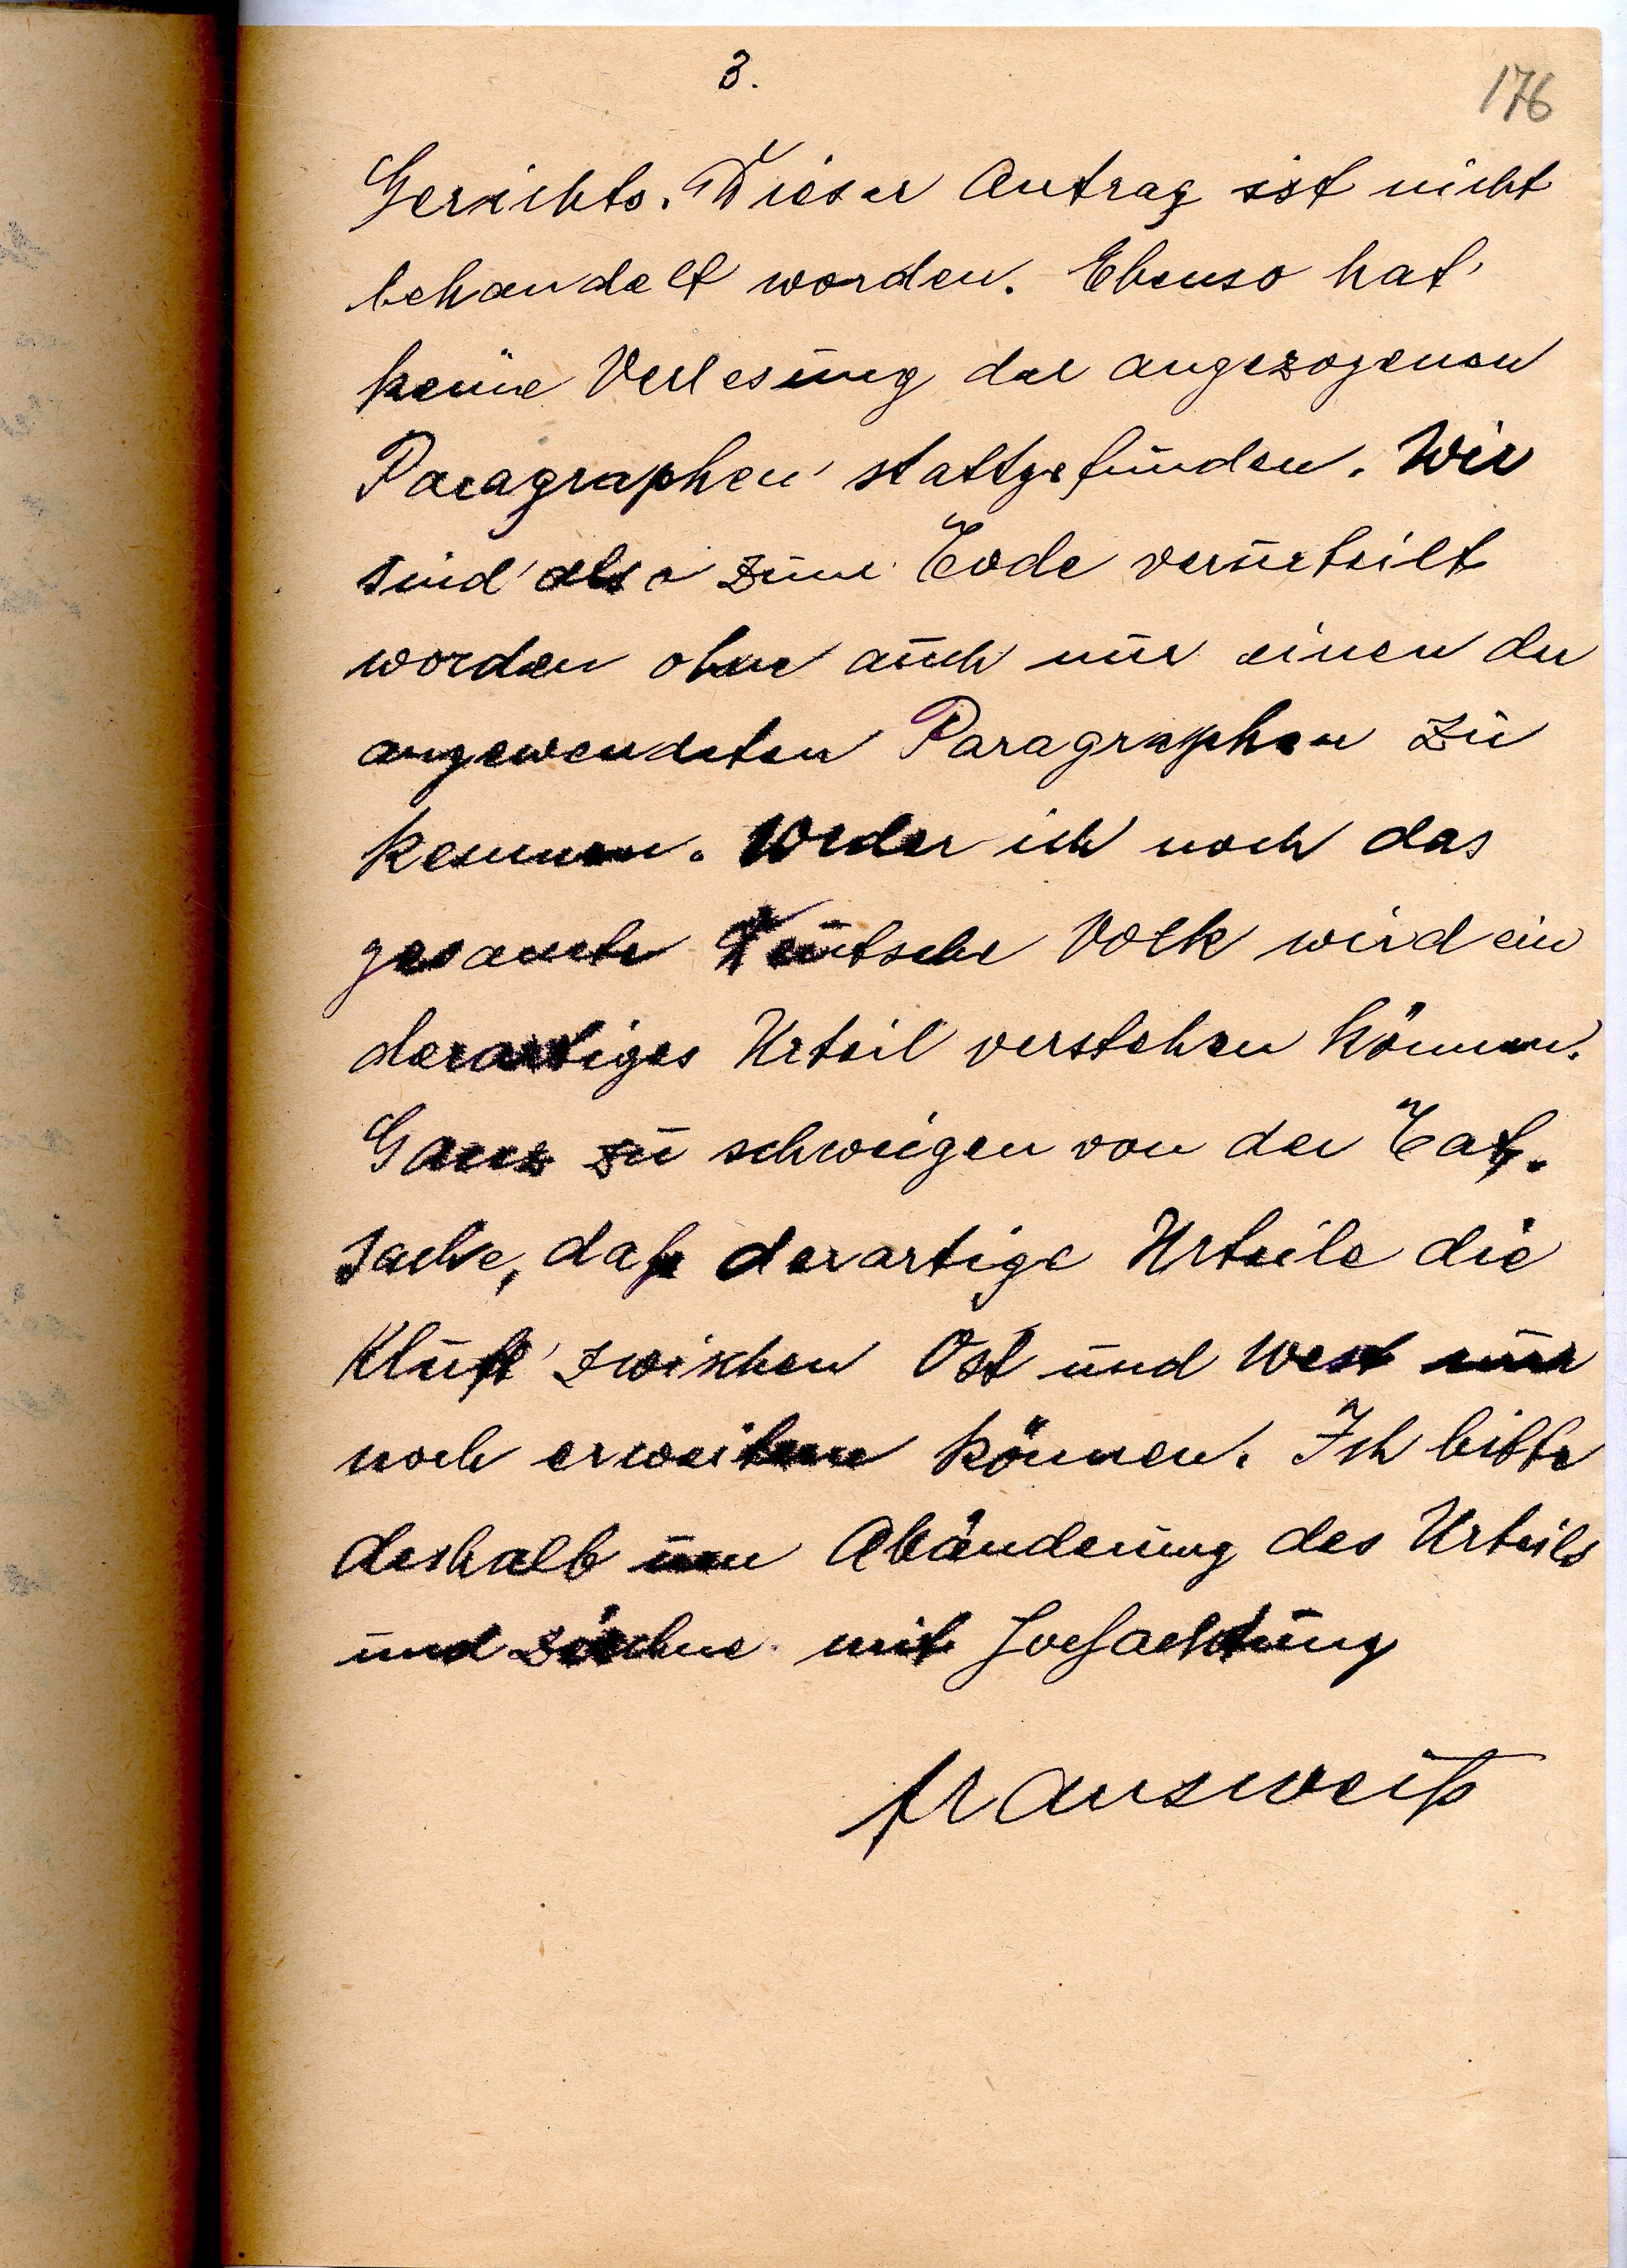 3.
176
Gerichts. Dieser Antrag ist nicht
behandelt worden. Ebenso hat
keine Verlesung der angezogenen
Paragraphen stattgefunden. Wir
sind also zum Tode verurteilt
worden ohne auch nur einen der
angewendeten Paragraphen zu
kennen. Weder ich noch das
gesamte Deutsche Volk wird ein
derartiges Urteil verstehen können.
Ganz zu schweigen von der Tat-
sache, daß derartige Urteile die
Kluft zwischen Ost und West nur
noch erweitern können. Ich bitte
deshalb um Abänderung des Urteils
und zeichne mit Hochachtung